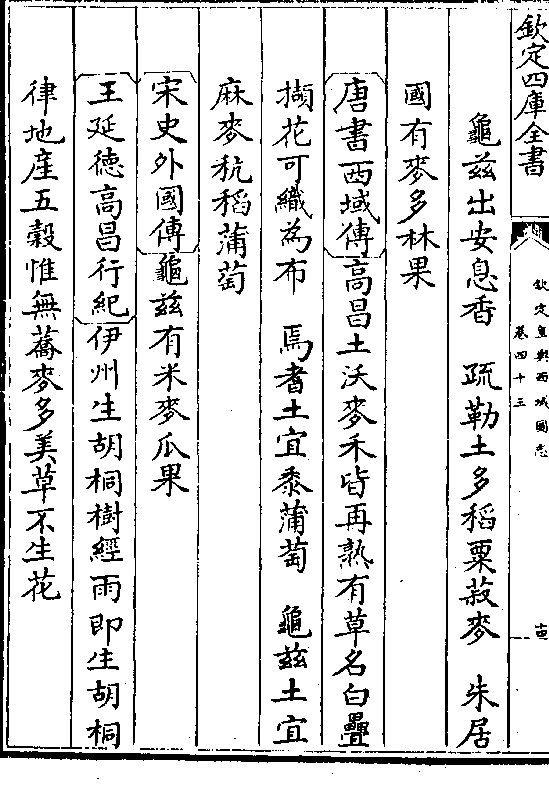 欽定四庫全書
欽定皇輿西域圖志
卷四十三
龜兹出安息香　疏勒土多稻粟菽麥　朱居
國有麥多林果
唐書西域傳高昌土沃麥禾皆再熟有草名白疊
擷花可織為布　焉耆土宜黍蒲萄　龜兹土宜
麻麥秔稻蒲萄
宋史外國傳龜兹有米麥瓜果
王延徳高昌行紀伊州生胡桐樹經雨即生胡桐
律地産五穀惟無蕎麥多美草不生花